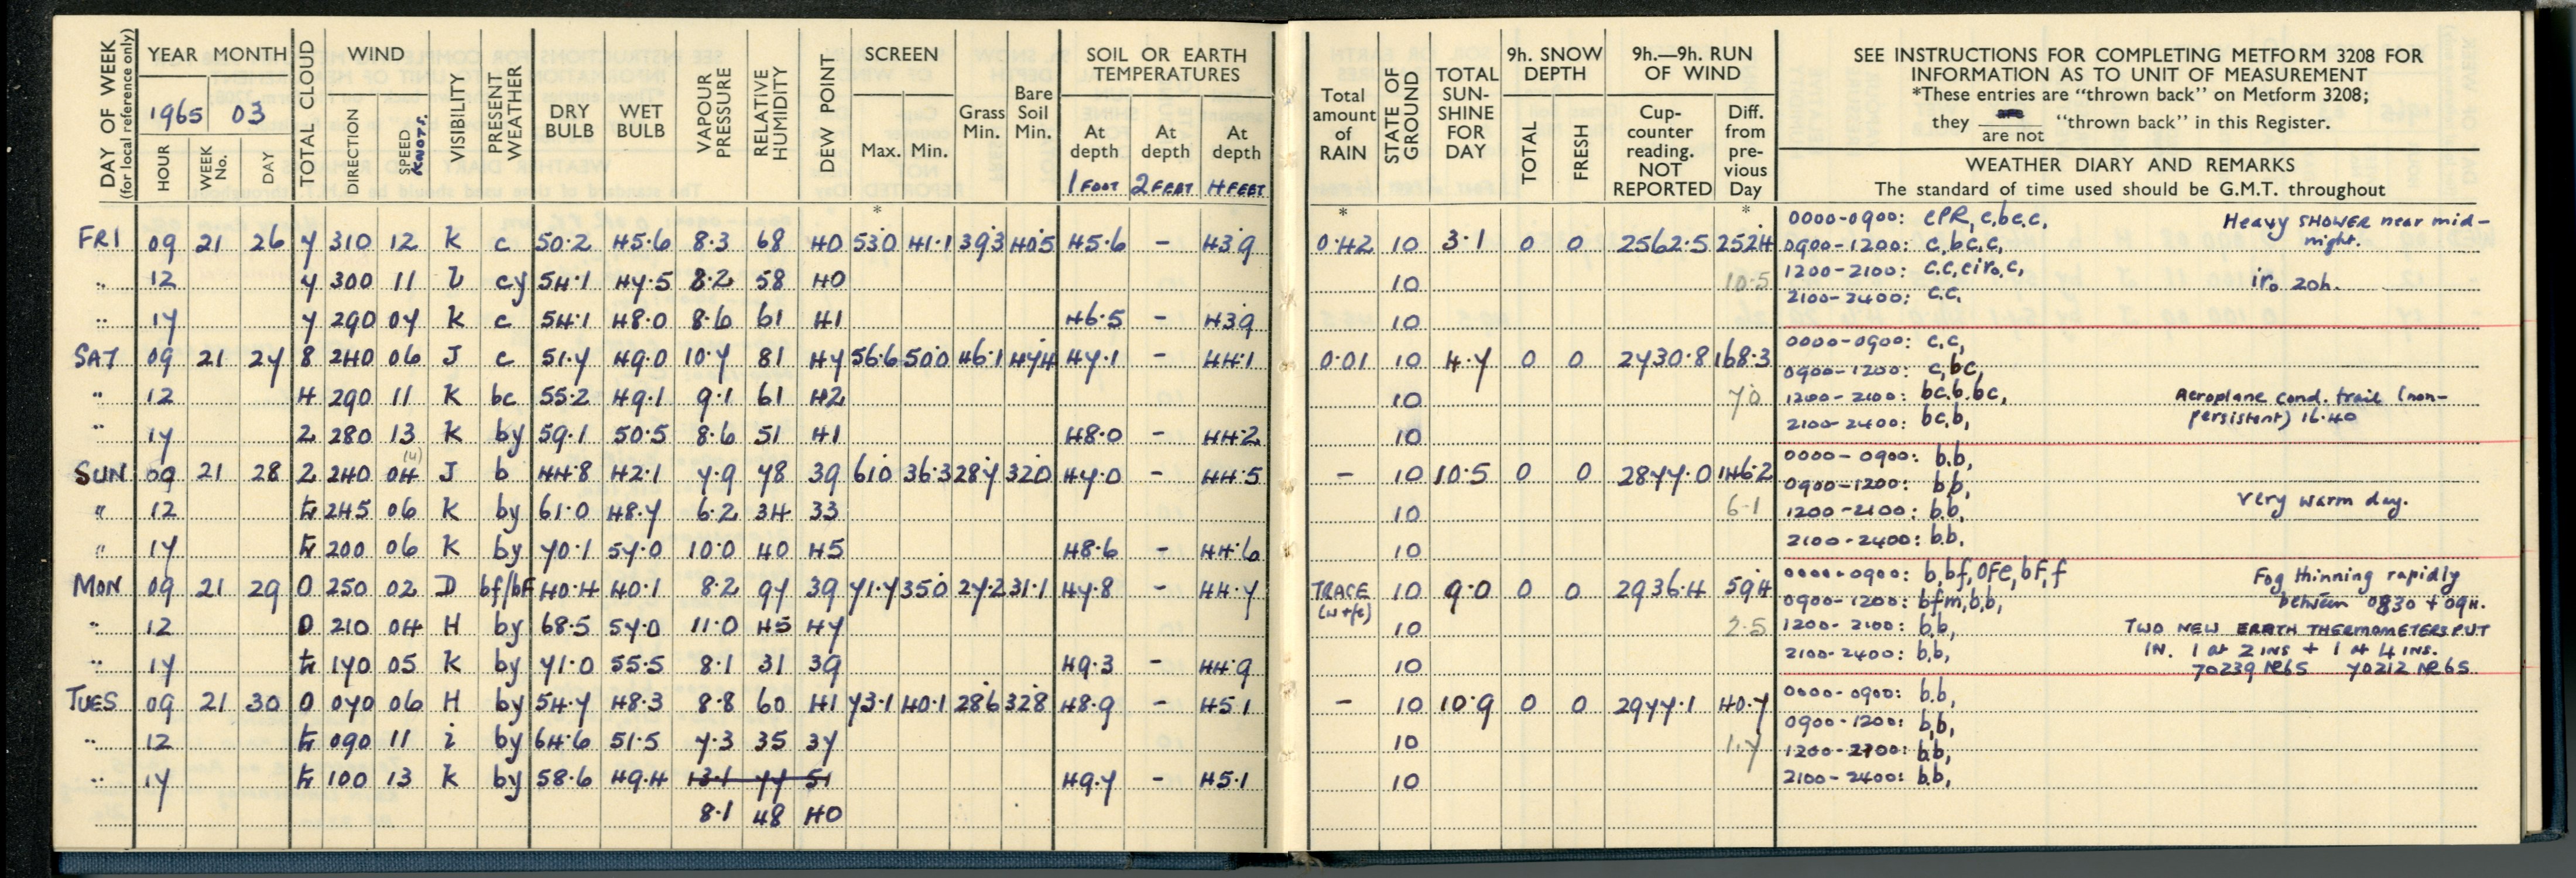 DAY OF WEEK
(for local reference only)
YEAR MONTH
1965 03
HOUR
WEEK No.
DAY
TOTAL CLOUD
WIND
DIRECTION
SPEED KNOTS.
VISIBILITY
PRESENT WEATHER
DRY BULB
WET BULB
VAPOUR PRESSURE
RELATIVE HUMIDITY
DEW POINT
SCREEN
Max. Min.
Grass Min.
Bare Soil Min.
SOIL OR EARTH TEMPERATURES
At depth 1 FOOT
At depth 2 FEET
At depth 4 FEET
Total amount of RAIN
STATE OF GROUND
TOTAL SUN-SHINE FOR DAY
9h. SNOW DEPTH
TOTAL
FRESH
9h.—9h. RUN OF WIND
Cup-counter reading. NOT REPORTED
Diff. from pre-vious Day
SEE INSTRUCTIONS FOR COMPLETING METFORM 3208 FOR
INFORMATION AS TO UNIT OF MEASUREMENT
*These entries are "thrown back" on Metform 3208;
they are / are not "thrown back" in this Register.
WEATHER DIARY AND REMARKS
The standard of time used should be G.M.T. throughout
* * *
FRI 09 21 26 7 310 12 K c 50.2 45.6 8.3 68 40 53.0 41.1 39.3 40.5 45.6 - 43.9 0.42 10 3.1 0 0 2562.5 252.4
0000-0900: cPR, c,bc.c, Heavy SHOWER near mid-
night.
0900-1200: c,bc,c,
.. 12 7 300 11 cy 54.1 47.5 8.2 58 40 10 10.5
1200-2100: c.c,ciro,c, iro 20h.
2100-2400: c.c.
.. 17 7 290 07 K c 54.1 48.0 8.6 61 41 46.5 - 43.9 10
SAT 09 21 27 8 240 06 J c 51.7 49.0 10.7 81 47 56.6 50.0 46.1 47.4 47.1 - 44.1 0.01 10 4.7 0 0 2730.8 168.3
0000-0900: c,c,
0900-1200: c,bc,
.. 12 4 290 11 K bc 55.2 49.1 9.1 61 42 10 7.0
1200-2100: bc.b.bc, Aeroplane cond. trail (non-
persistent) 16.40
2100-2400: bc,b,
.. 17 2 280 13 K by 59.1 50.5 8.6 51 41 48.0 - 44.2 10
SUN 09 21 28 2 240 04 (4) J b 44.8 42.1 7.9 78 39 61.0 36.3 28.7 32.0 47.0 - 44.5 - 10 10.5 0 0 2877.0 146.2
0000-0900: b.b,
0900-1200: b.b,
" 12 tr 245 06 K by 61.0 48.7 6.2 34 33 10 6.1
1200-2100: b.b, Very warm day.
" 17 tr 200 06 K by 70.1 57.0 10.0 40 45 48.6 - 44.6 10
2100-2400: b.b.
MON 09 21 29 0 250 02 D bf/bF 40.4 40.1 8.2 97 39 71.7 35.0 27.2 31.1 47.8 - 44.7 TRACE 10 9.0 0 0 2936.4 59.4
(w+fe)
0000-0900: b,bf,0Fe,bF,f Fog thinning rapidly
between 0830 + 09H.
0900-1200: bfm,b.b,
.. 12 0 210 04 H by 68.5 57.0 11.0 45 47 10 2.5
1200-2100: b.b, TWO NEW EARTH THERMOMETERS PUT
IN. 1 at 2 INS + 1 at 4 INS.
2100-2400: b.b, 70239 70212
.. 17 tr 170 05 K by 71.0 55.5 8.1 31 39 49.3 - 44.9 10
TUES 09 21 30 0 070 06 H by 54.7 48.3 8.8 60 41 73.1 40.1 28.6 32.8 48.9 - 45.1 - 10 10.9 0 0 2977.1 40.7
0000-0900: b.b,
0900-1200: b,b,
.. 12 tr 090 11 i by 64.6 51.5 7.3 35 37 10 1.7
1200-2100: b.b,
.. 17 tr 100 13 K by 58.6 49.4 13.1 77 51 49.7 - 45.1 10
2100-2400: b.b,
8.1 48 40